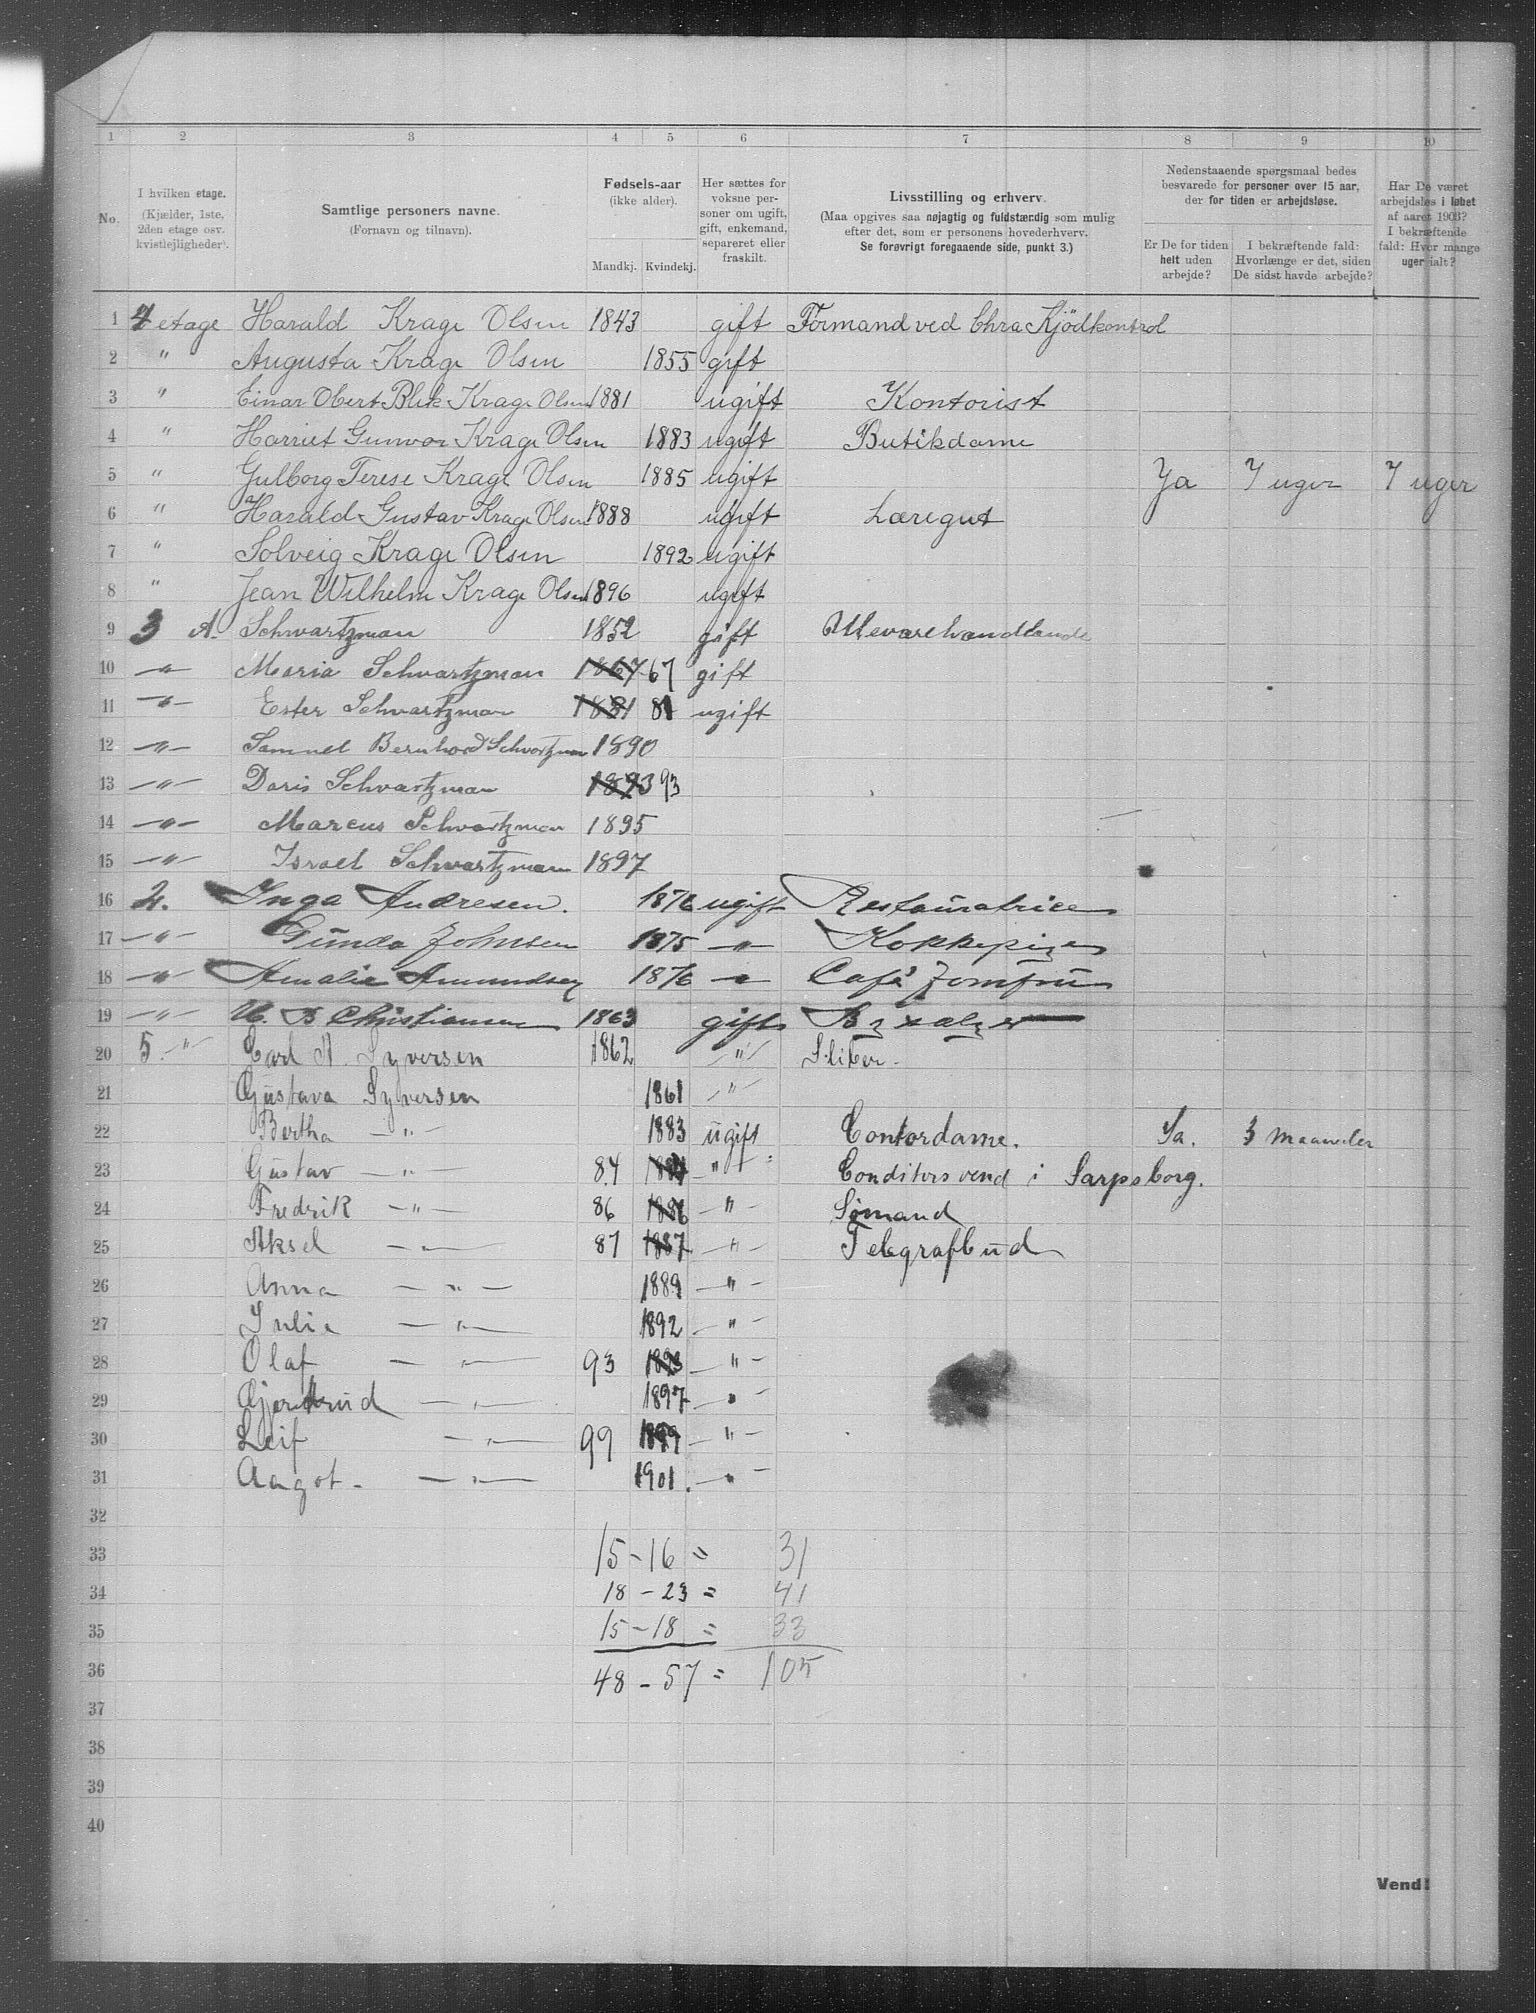 1 2 3 4 5 6 7 8 9 10
No.
I hvilken etage.
(Kjælder, 1ste,
2den etage osv.
kvistlejligheder).
Samtlige personers navne.
(Fornavn og tilnavn).
Fødsels-aar
(ikke alder).
Mandkj. Kvindekj.
Her sættes for
voksne per-
soner om ugift,
gift, enkemand,
separeret eller
fraskilt.
Livsstilling og erhverv.
(Maa opgives saa nøjagtig og fuldstændig som mulig
efter det, som er personens hovederhverv.
Se forøvrigt foregaaende side, punkt 3.)
Nedenstaaende spørgsmaal bedes
besvarede for personer over 15 aar,
der for tiden er arbejdsløse.
Er De for tiden
helt uden
arbejde?
I bekræftende fald:
Hvorlænge er det, siden
De sidst havde arbejde?
Har De været
arbejdsløs i løbet
af aaret 1903?
I bekræftende
fald: Hvor mange
uger ialt?
1 4 etage Harald Krage Olsen 1843 gift Formand ved Chra Kjödkontrol
2 " Augusta Krage Olsen 1855 gift
3 " Einar Obert Blik Krage Olsen 1881 ugift Kontorist
4 " Harriet Gunvor Krage Olsen 1883 ugift Butikdame
5 " Gulborg Terese Krage Olsen 1885 ugift Ja 7 uger 7 uger
6 " Harald Gustav Krage Olsen 1888 ugift Læregut
7 " Solveig Krage Olsen 1892 ugift
8 " Jean Wilhelm Krage Olsen 1896 ugift
9 3 A. Schwartzman 1852 gift Uldvarehandlende
10 —"— Maria Schwartzman 1867 67 gift
11 —"— Ester Schwartzman 1881 81 ugift
12 —"— Samuel Bernhard Schwartzman 1890
13 —"— Doris Schwartzman 1893 93
14 —"— Marcus Schwartzman 1895
15 —"— Israel Schwartzman 1897
16 2. Inga Andresen. 1876 ugift Restauratrice
17 —"— Gunda Johnsen 1875 —"— Kokkepige
18 —"— Amalie Amundsen 1876 —"— Café Jomfru
19 —"— B Christiansen 1863 gift
20 5. —"— Carl A. Syversen 1862 —"— Sliber.
21 Gustava Syversen 1861 —"—
22 Bertha —"— 1883 ugift Contordame. Ja. 3 maaneder
23 Gustav —"— 84 1884 —"— Conditorsvend i Sarpsborg.
24 Fredrik —"— 86 1886 —"— Sømand
25 Aksel —"— 87 1887 —"— Telegrafbud
26 Anna —"— 1889 —"—
27 Julie —"— 1892 —"—
28 Olaf —"— 93 1893 —"—
29 Gjertrud —"— 1897 —"—
30 Leif —"— 99 1899 —"—
31 Aagot. —"— 1901. —"—
32
33 15 - 16 = 31
34 18 - 23 = 41
35 15 - 18 = 33
36 48 - 57 = 105
37
38
39
40
Vend!